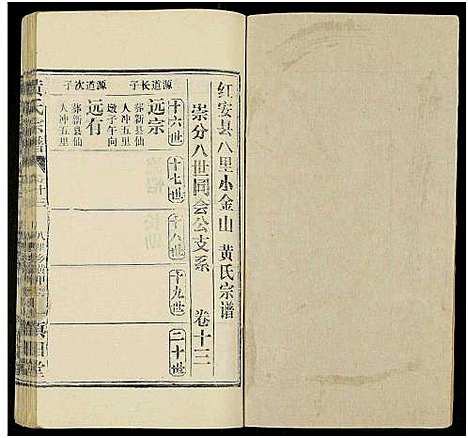 红安县八里小金山 黄氏宗谱
崇分八世同会公支系 卷十三
十六世
十七世
十八世
十九世
二十世
源道长子
远宗
葬新县仙
人冲五里
墩子午向
源道次子
远有
葬新县仙
人冲五里
黄氏宗谱